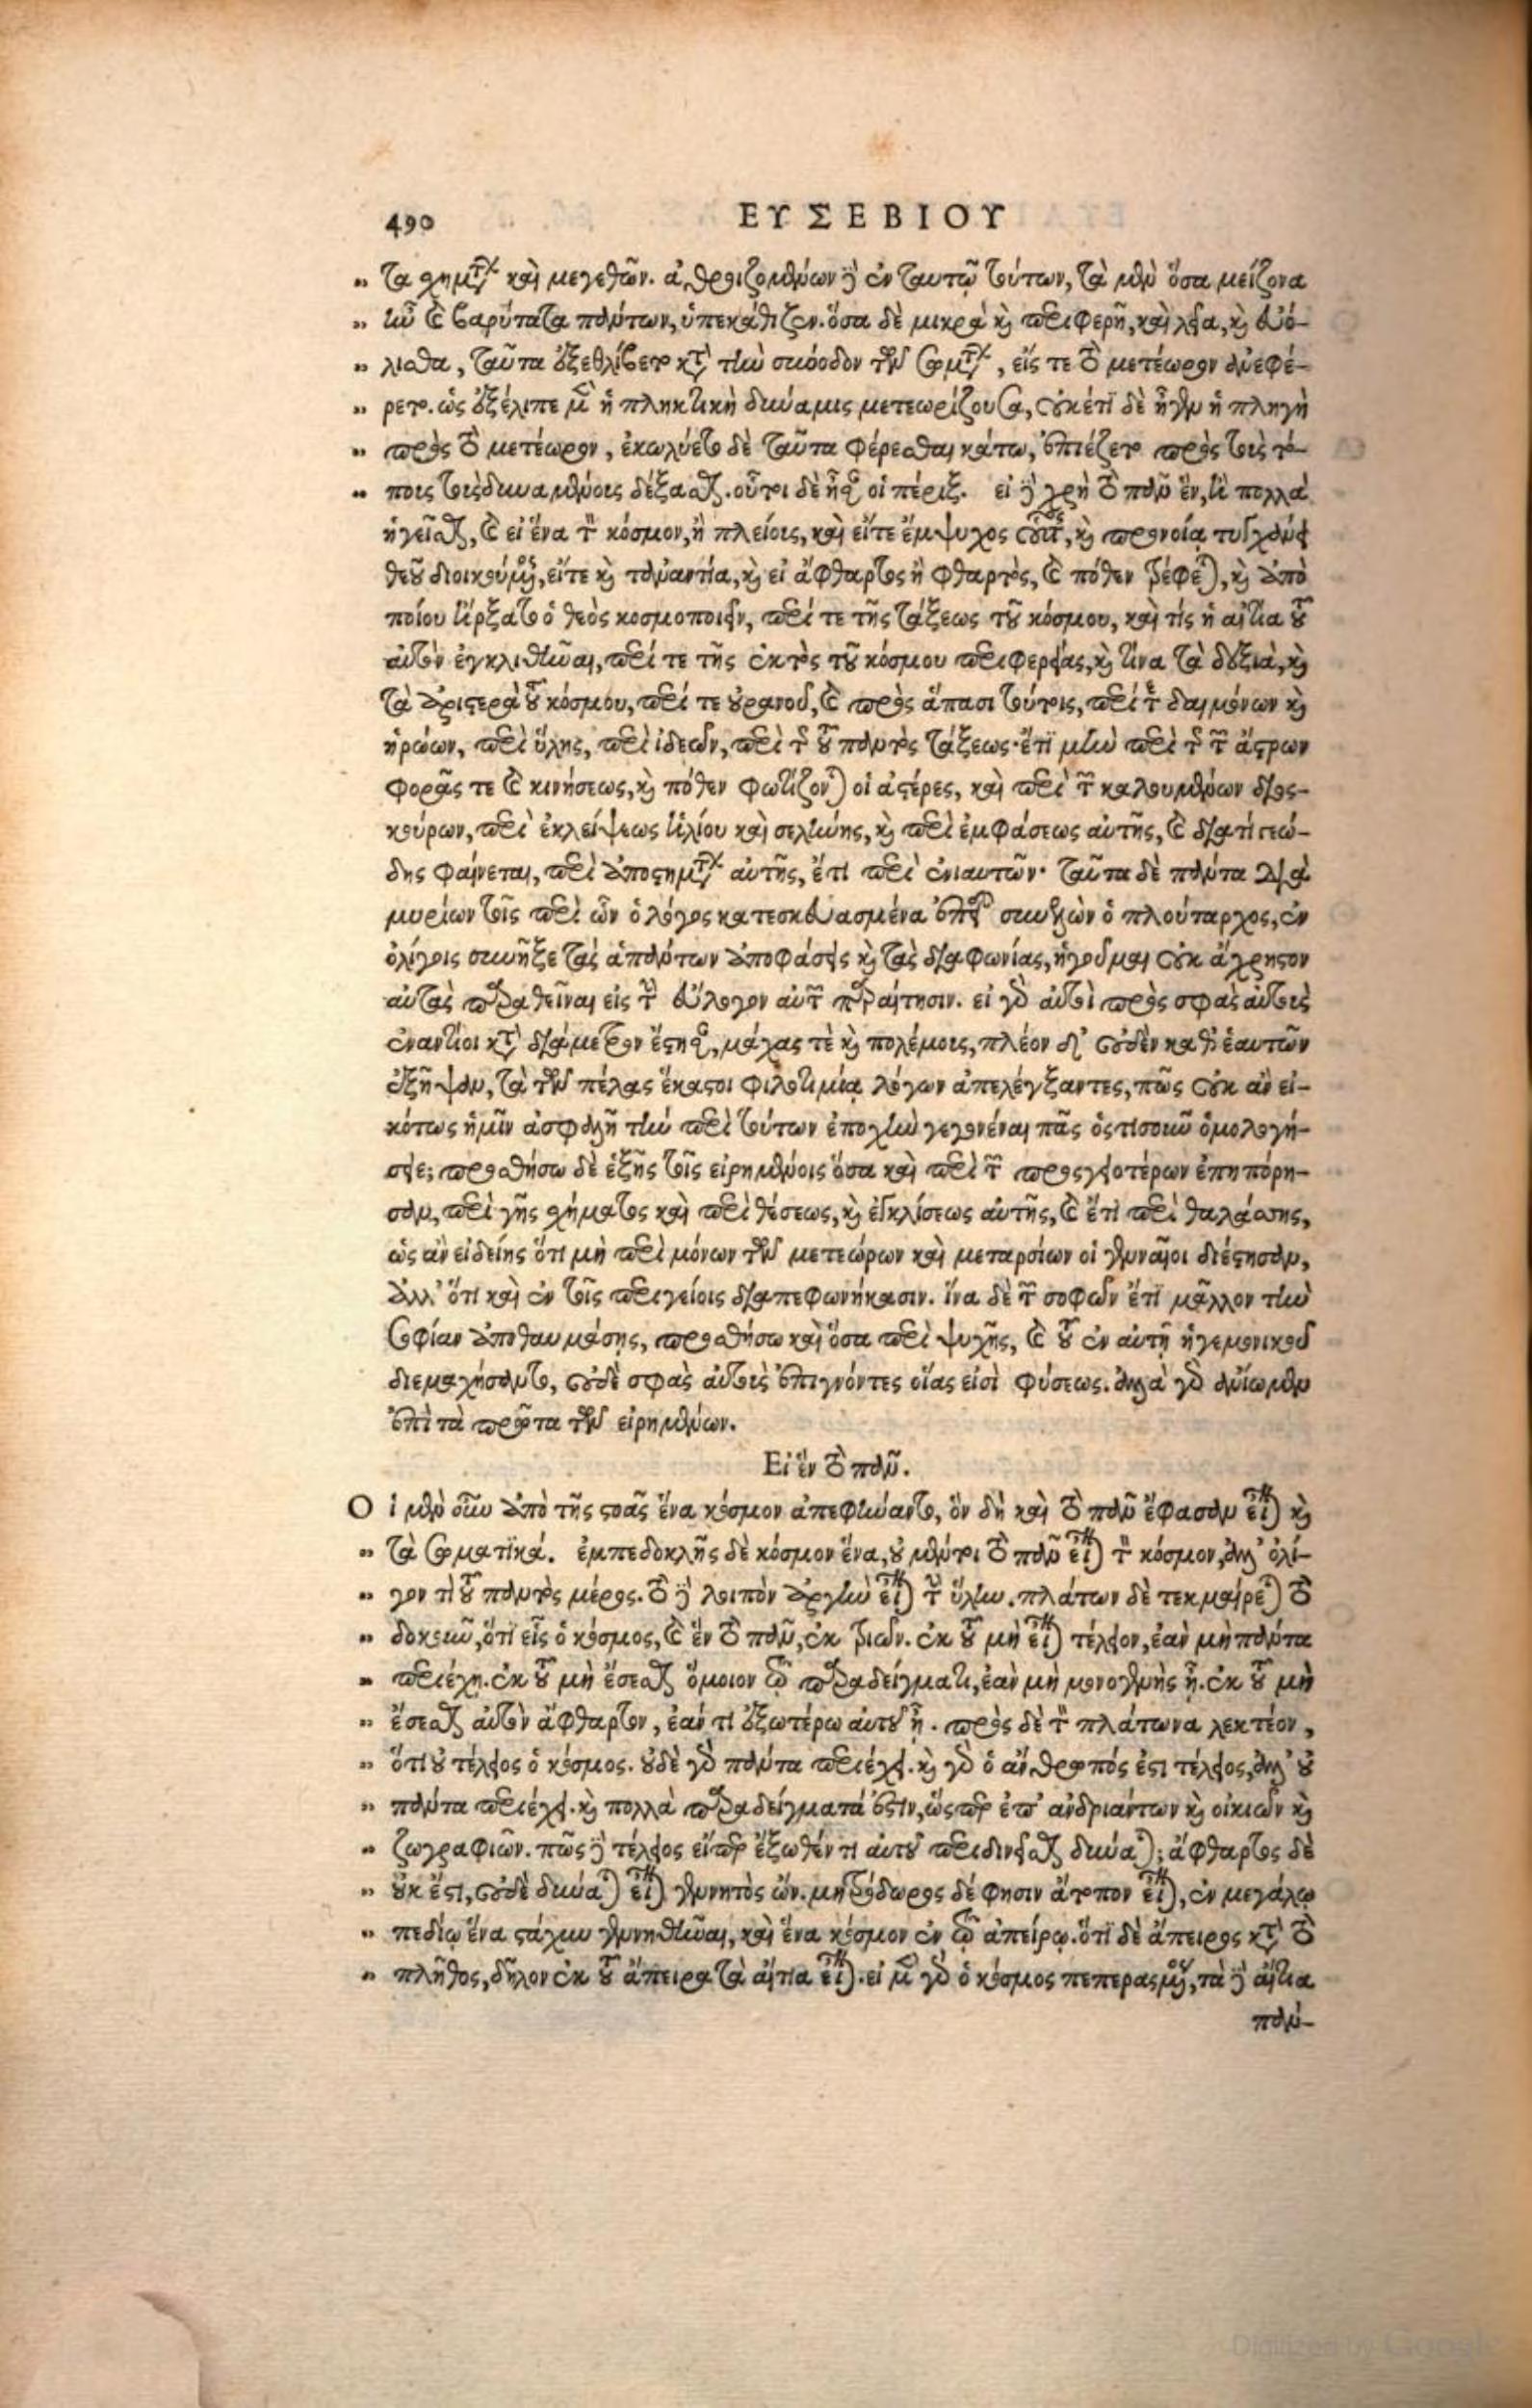 490 ΕΥΣΕΒΙΟΥ
„ τα σχημάτων καὶ μεγεθῶν. ἀθροιζομένων δὲ ἐν ταυτῷ τούτων, τὰ μὲν ὅσα μείζονα
„ ἦν καὶ βαρύτατα πάντων, ὑπεκάθιζεν. ὅσα δὲ μικρὰ καὶ περιφερῆ, καὶ λεῖα, καὶ εὐό-
„ λισθα, ταῦτα ἐξεθλίβετο κατὰ τὴν σύνοδον τῶν σωμάτων, εἴς τε τὸ μετέωρον ἀνεφέ-
„ ρετο. ὡς ἐξέλιπε μὲν ἡ πληκτικὴ δύναμις μετεωρίζουσα, οὐκέτι δὲ ἦγεν ἡ πληγὴ
„ πρὸς τὸ μετέωρον, ἐκωλύετο δὲ ταῦτα φέρεσθαι κάτω, ἐπιέζετο πρὸς τοὺς τό-
„ ποις τοὺς δυναμένοις δέξασθαι. οὗτοι δὲ ἦσαν οἱ πέριξ. εἰ δὲ χρὴ τὸ πᾶν ἕν, ἢ πολλὰ
ἡγεῖσθαι, καὶ εἰ ἕνα τὸν κόσμον, ἢ πλείοις, καὶ εἴτε ἔμψυχος οὗτος, καὶ προνοίᾳ τυγχάνει
θεοῦ διοικούμενος, εἴτε καὶ τἀναντία, καὶ εἰ ἄφθαρτος ἢ φθαρτὸς, καὶ πόθεν τρέφεται, καὶ ἀπὸ
ποίου ἤρξατο ὁ θεὸς κοσμοποιεῖν, περί τε τῆς τάξεως τοῦ κόσμου, καὶ τίς ἡ αἰτία τοῦ
αὐτὸν ἐγκλιθῆναι, περί τε τῆς ἐκτὸς τοῦ κόσμου περιφερείας, καὶ τίνα τὰ δεξιὰ, καὶ
τὰ ἀριστερὰ τοῦ κόσμου, περί τε οὐρανοῦ, καὶ πρὸς ἅπασι τούτοις, περί τε δαιμόνων καὶ
ἡρώων, περὶ ὕλης, περὶ ἰδεῶν, περὶ τῆς τοῦ παντὸς τάξεως· ἔτι μὴν περὶ τῆς τῶν ἄστρων
φορᾶς τε καὶ κινήσεως, καὶ πόθεν φωτίζονται οἱ ἀστέρες, καὶ περὶ τῶν καλουμένων διος-
κούρων, περὶ ἐκλείψεως ἡλίου καὶ σελήνης, καὶ περὶ ἐμφάσεως αὐτῆς, καὶ διατί γεώ-
δης φαίνεται, περὶ ἀποστημάτων αὐτῆς, ἔτι περὶ ἐνιαυτῶν· ταῦτα δὲ πάντα διὰ
μυρίων τοῖς περὶ ὧν ὁ λόγος κατεσκευασμένα ἐπειδὴ συνιδὼν ὁ πλούταρχος, ἐν
ὀλίγοις συνῆξε τὰς ἁπάντων ἀποφάσεις καὶ τὰς διαφωνίας, ἡγοῦμαι οὐκ ἄχρηστον
αὐτὰς παραθεῖναι εἰς τὴν εὔλογον αὐτῶν παραίτησιν. εἰ γὰρ αὐτοὶ πρὸς σφᾶς αὐτοὺς
ἐναντίοι κατὰ διάμετρον ἔστησαν, μάχας τὲ καὶ πολέμοις, πλέον δ’ οὐδὲν καθ’ ἑαυτῶν
ἐξῆψαν, τὰ τῶν πέλας ἕκαστοι φιλοτιμίᾳ λόγων ἀπελέγξαντες, πῶς οὐκ ἂν εἰ-
κότως ἡμῖν ἀσφαλῆ τὴν περὶ τούτων ἐποχὴν γεγονέναι πᾶς ὁστισοῦν ὁμολογή-
σειε; προσθήσω δὲ ἑξῆς τοῖς εἰρημένοις ὅσα καὶ περὶ τῶν προςγειοτέρων ἐπηπόρη-
σαν, περὶ γῆς σχήματος καὶ περὶ θέσεως, καὶ ἐγκλίσεως αὐτῆς, καὶ ἔτι περὶ θαλάσσης,
ὡς ἂν εἰδείης ὅτι μὴ περὶ μόνων τῶν μετεώρων καὶ μεταρσίων οἱ γενναῖοι διέστησαν,
ἀλλ’ ὅτι καὶ ἐν τοῖς περιγείοις διαπεφωνήκασιν. ἵνα δὲ τῶν σοφῶν ἔτι μᾶλλον τὴν
σοφίαν ἀποθαυμάσῃς, προσθήσω καὶ ὅσα περὶ ψυχῆς, καὶ τοῦ ἐν αὐτῇ ἡγεμονικοῦ
διεμαχήσαντο, οὐδὲ σφᾶς αὐτοὺς ἐπιγνόντες οἵας εἰσὶ φύσεως. ἀλλὰ γὰρ ἀνίωμεν
ἐπὶ τὰ πρῶτα τῶν εἰρημένων.
Εἰ ἓν τὸ πᾶν.
Οἱ μὲν οὖν ἀπὸ τῆς στοᾶς ἕνα κόσμον ἀπεφήναντο, ὃν δὴ καὶ τὸ πᾶν ἔφασαν εἶναι καὶ
„ τὰ σωματικά. ἐμπεδοκλῆς δὲ κόσμον ἕνα, οὐ μέντοι τὸ πᾶν εἶναι τὸν κόσμον, ἀλλ’ ὀλί-
„ γον τὶ τοῦ παντὸς μέρος. τὸ δὲ λοιπὸν ἀργὴν εἶναι τὴν ὕλην. πλάτων δὲ τεκμαίρεται τὸ
„ δοκοῦν, ὅτι εἷς ὁ κόσμος, καὶ ἓν τὸ πᾶν, ἐκ τριῶν. ἐκ τοῦ μὴ εἶναι τέλειον, ἐὰν μὴ πάντα
„ περιέχῃ. ἐκ τοῦ μὴ ἔσεσθαι ὅμοιον τῷ παραδείγματι, ἐὰν μὴ μονογενὴς ᾖ. ἐκ τοῦ μὴ
„ ἔσεσθαι αὐτὸν ἄφθαρτον, ἐάν τι ἐξωτέρω αὐτοῦ ᾖ. πρὸς δὲ τὸν πλάτωνα λεκτέον,
„ ὅτι οὐ τέλειος ὁ κόσμος. οὐδὲ γὰρ πάντα περιέχει. καὶ γὰρ ὁ ἄνθρωπός ἐστι τέλειος, ἀλλ’ οὐ
„ πάντα περιέχει. καὶ πολλὰ παραδείγματά ἐστιν, ὥσπερ ἐπ’ ἀνδριάντων καὶ οἰκιῶν καὶ
„ ζωγραφιῶν. πῶς δὲ τέλειος εἴπερ ἔξωθέν τι αὐτοῦ περιδινεῖσθαι δύναται; ἄφθαρτος δὲ
„ οὐκ ἔστι, οὐδὲ δύναται εἶναι γεννητὸς ὤν. μητρόδωρος δέ φησιν ἄτοπον εἶναι, ἐν μεγάλῳ
„ πεδίῳ ἕνα στάχυν γεννηθῆναι, καὶ ἕνα κόσμον ἐν τῷ ἀπείρῳ. ὅτι δὲ ἄπειρος κατὰ τὸ
„ πλῆθος, δῆλον ἐκ τοῦ ἄπειρα τὰ αἴτια εἶναι. εἰ μὲν γὰρ ὁ κόσμος πεπερασμένος, τὰ δὲ αἴτια
πάν-